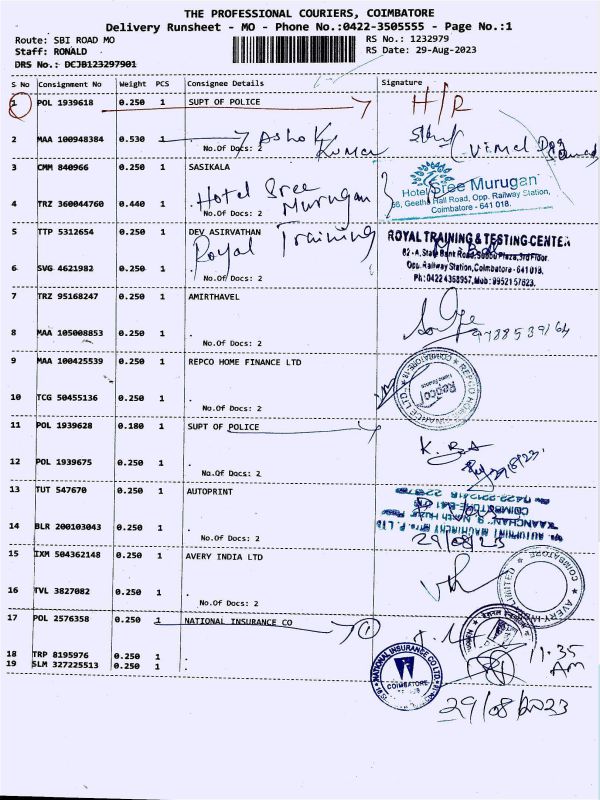 THE PROFESSIONAL COURIERS, COIMBATORE
Delivery Runsheet - MO - Phone No.:0422-3505555 - Page No.:1
Route: SBI ROAD MO
RS No.: 1232979
Staff: RONALD
RS Date: 29-Aug-2023
DRS No.: DCJB123297901
S No Consignment No Weight PCS Consignee Details Signature
1 POL 1939618 0.250 1 SUPT OF POLICE H/R
2 MAA 100948384 0.530 1 Ashok Kumar
No.Of Docs: 2
3 CMM 840966 0.250 1 SASIKALA
Hotel Sree Murugan
Hotel Sree Murugan
Hall Road, Opp. Railway Station,
Coimbatore - 641 018.
4 TRZ 360044760 0.440 1 .
No.Of Docs: 2
5 TTP 5312654 0.250 1 DEV ASIRVATHAN
Royal Training
ROYAL TRAINING & TESTING CENTER
82-A, State Bank Road, 3rd Floor
Opp. Railway Station, Coimbatore - 641 018.
Ph: 0422 4358957, Mob: 99521 57623.
6 SVG 4621982 0.250 1 .
No.Of Docs: 2
7 TRZ 95168247 0.250 1 AMIRTHAVEL
8 MAA 105008853 0.250 1 .
9788539164
No.Of Docs: 2
9 MAA 100425539 0.250 1 REPCO HOME FINANCE LTD
REPCO HOME FINANCE LTD. COIMBATORE-18
Repco
Home Finance
10 TCG 50455136 0.250 1 .
No.Of Docs: 2
11 POL 1939628 0.180 1 SUPT OF POLICE
12 POL 1939675 0.250 1 .
29/8/23
No.Of Docs: 2
13 TUT 547670 0.250 1 AUTOPRINT
AUTOPRINT MACHINERY P. LTD
COIMBATORE
14 BLR 200103043 0.250 1 .
29/08/23
No.Of Docs: 2
15 IXM 504362148 0.250 1 AVERY INDIA LTD
AVERY INDIA LIMITED COIMBATORE
16 TVL 3827082 0.250 1 .
No.Of Docs: 2
17 POL 2576358 0.250 1 NATIONAL INSURANCE CO 1
11.35 AM
18 TRP 8195976 0.250 1 .
19 SLM 327225513 0.250 1 .
NATIONAL INSURANCE CO. LTD.
COIMBATORE
29/08/2023